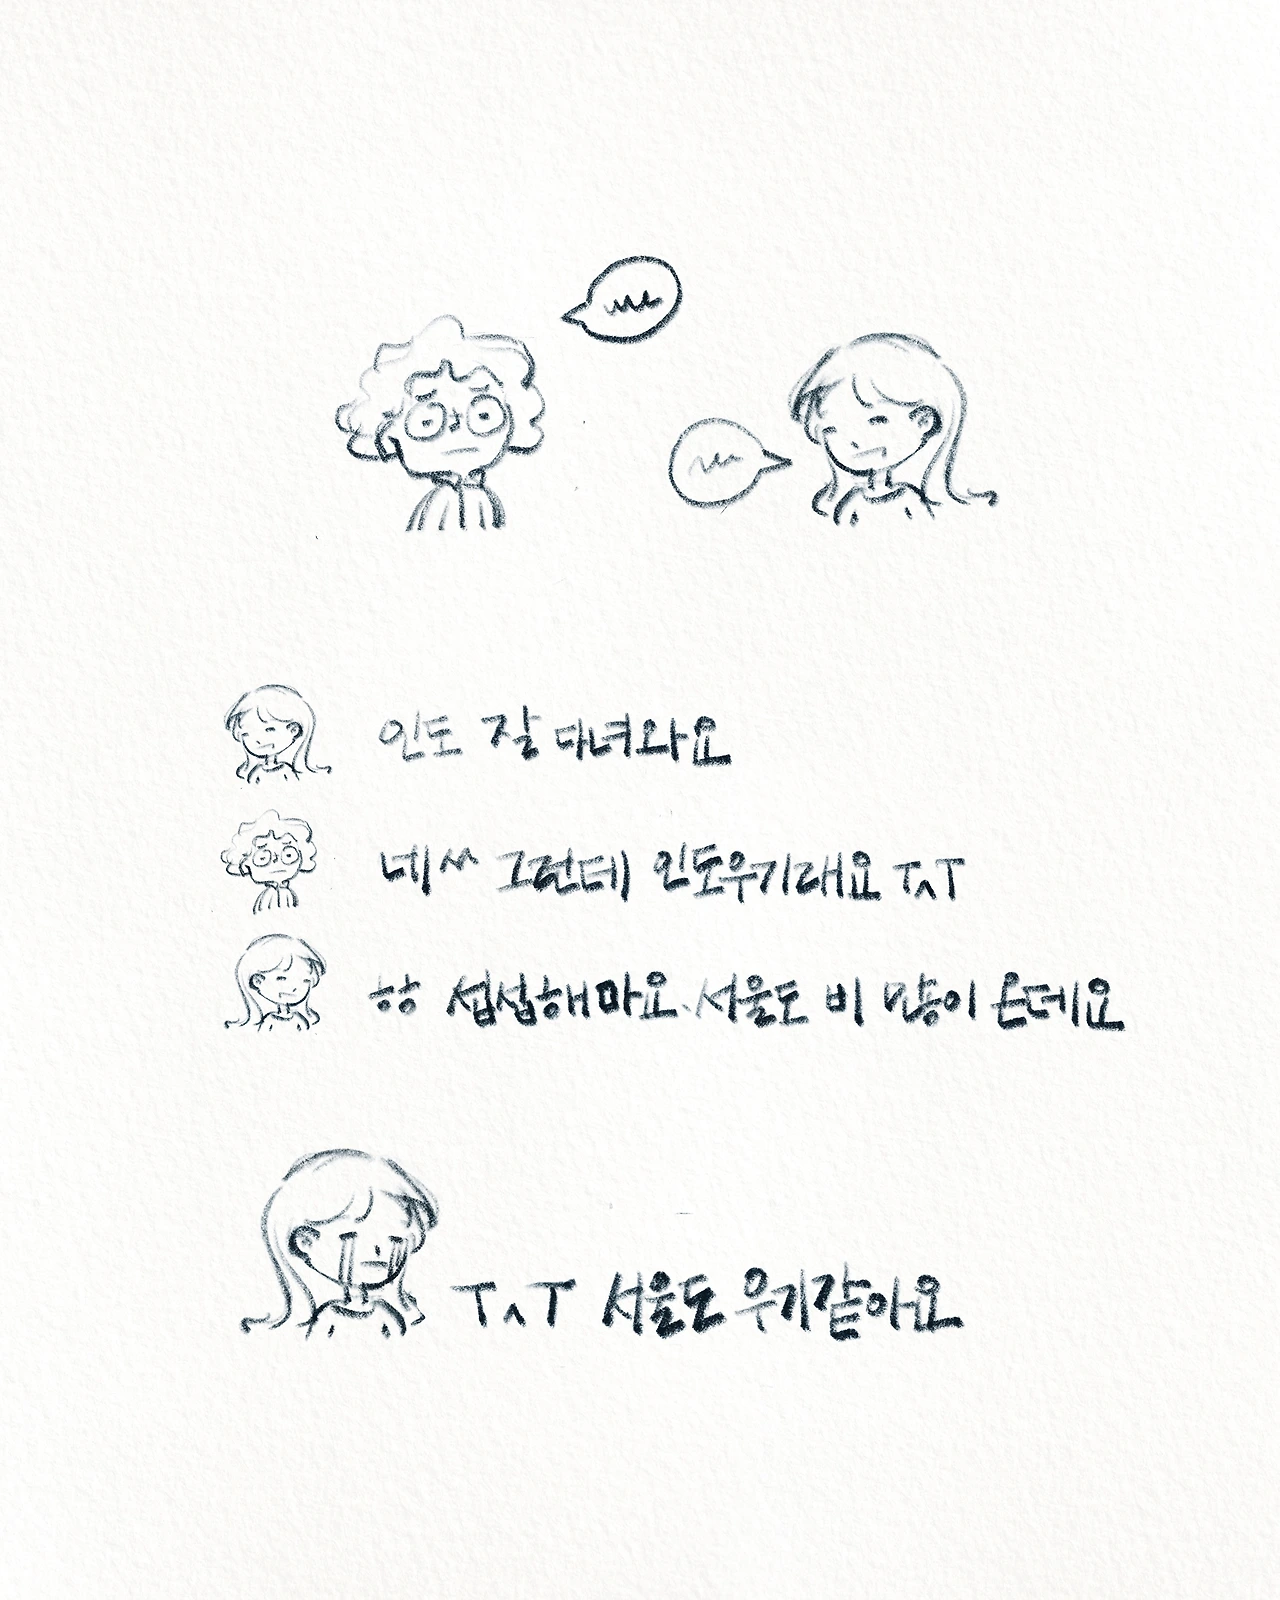 인도 잘 다녀와요
네^^ 그런데 인도우기래요 T^T
항 섭섭해마요. 서울도 비 많이 온데요
T^T 서울도 우기같아요